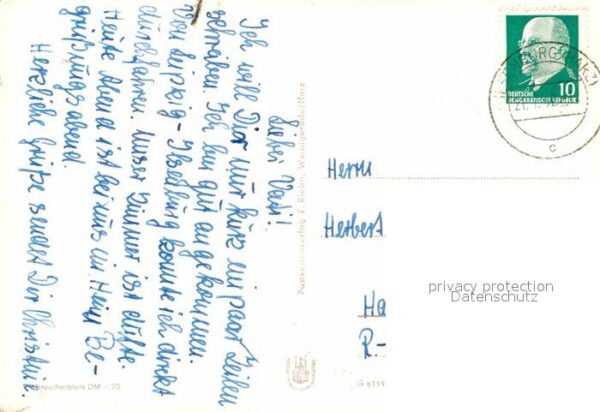 Lieber Vati!
Ich will Dir nur kurz ein paar Zeilen
schreiben. Ich bin gut angekommen.
Von Leipzig - Ilsenburg konnte ich direkt
durchfahren. Unser Zimmer ist dufte.
Heute Abend ist bei uns im Heim Be-
grüßungsabend.
Herzliche Grüße sendet Dir Christin.
Postkartenverlag E. Riehn, Wernigerode/Harz
Verbraucherpreis DM -.20
G 6159
DEUTSCHE
DEMOKRATISCHE REPUBLIK
10
ILSENBURG (HARZ)
c
Herrn
Herbert
Ha
R-
privacy protection
Datenschutz